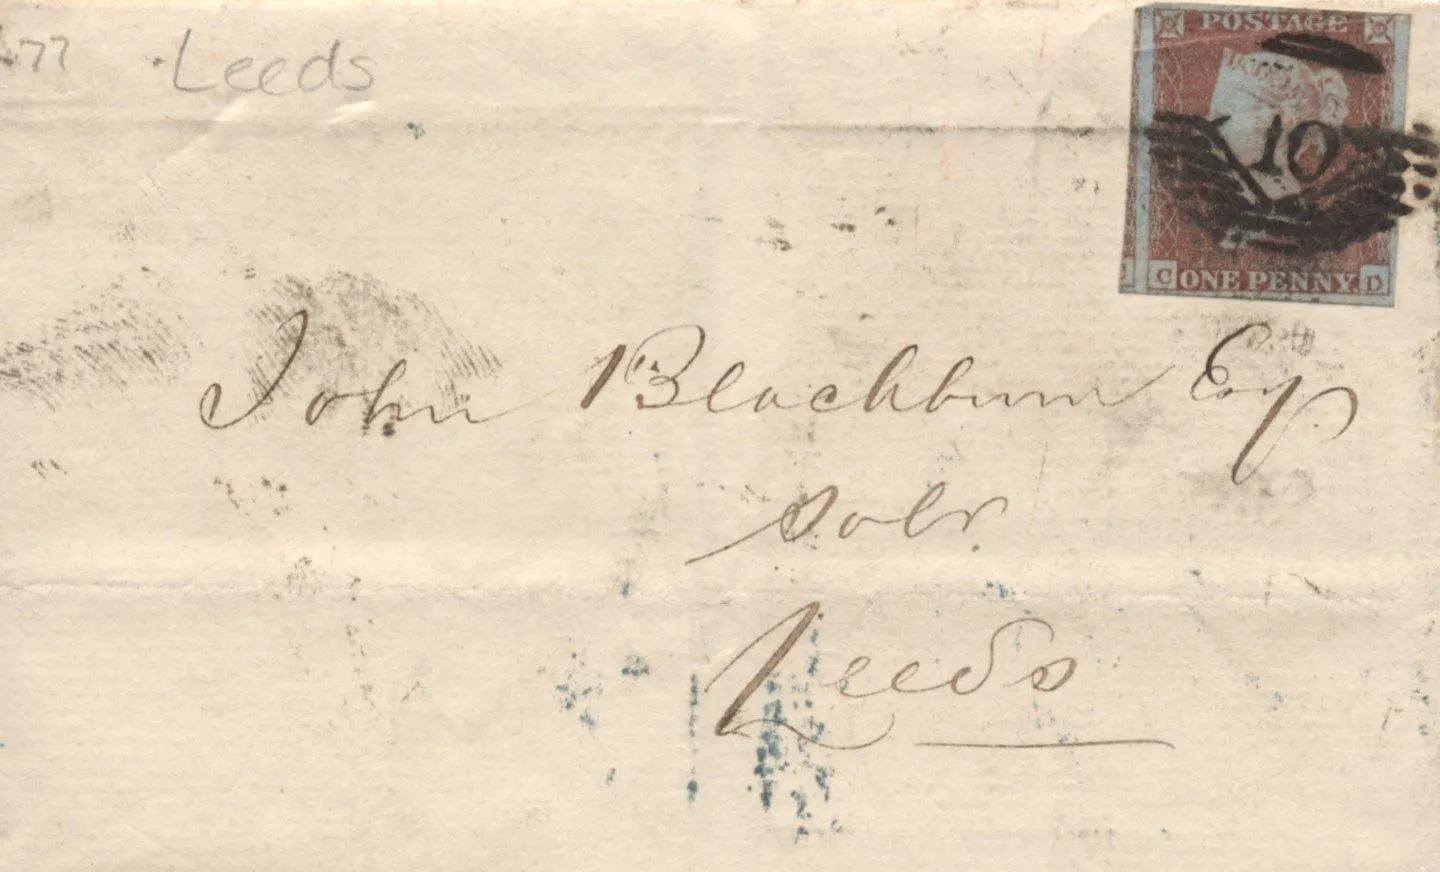 477 Leeds
POSTAGE
10
C ONE PENNY D
John Blackburn Esqr
Solr.
Leeds